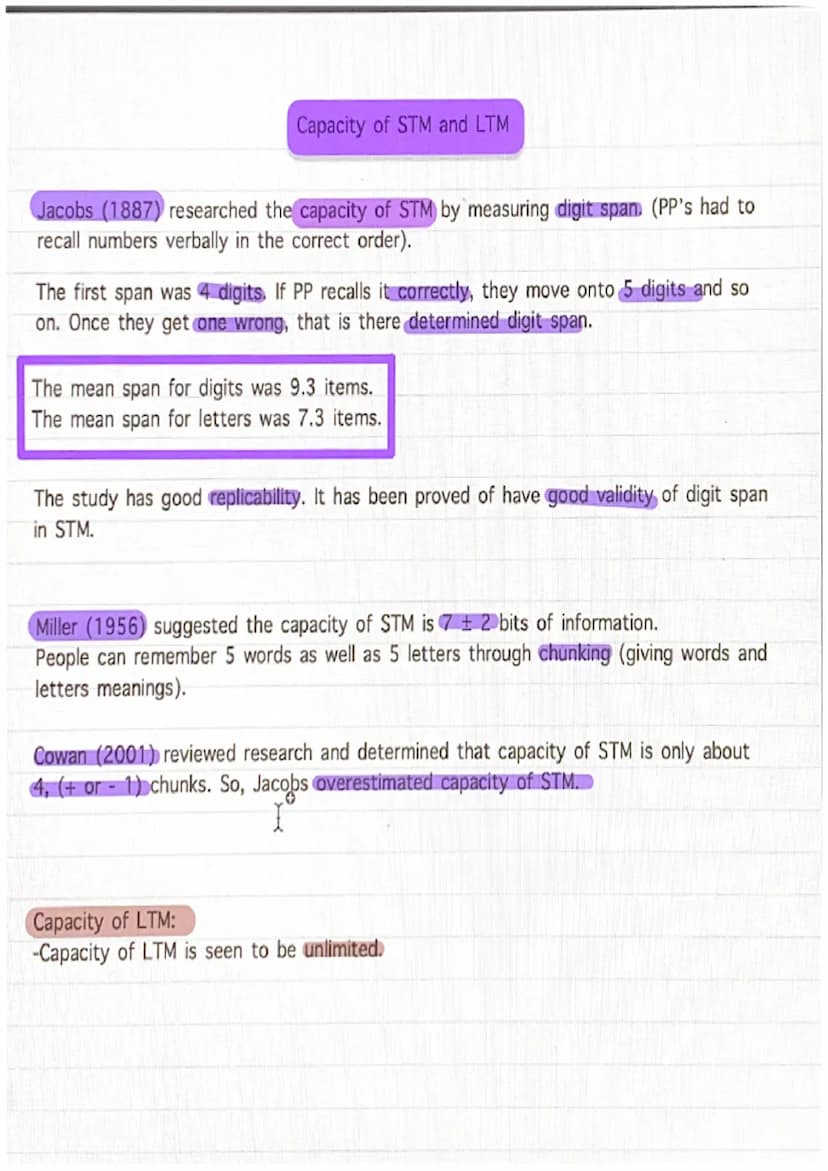 Capacity of STM and LTM
Jacobs (1887) researched the capacity of STM by measuring digit span. (PP's had to
recall numbers verbally in the correct order).
The first span was 4 digits. If PP recalls it correctly, they move onto 5 digits and so
on. Once they get one wrong, that is there determined digit span.
The mean span for digits was 9.3 items.
The mean span for letters was 7.3 items.
The study has good replicability. It has been proved of have good validity of digit span
in STM.
Miller (1956) suggested the capacity of STM is 7 ± 2 bits of information.
People can remember 5 words as well as 5 letters through chunking (giving words and
letters meanings).
Cowan (2001) reviewed research and determined that capacity of STM is only about
4, (+ or - 1) chunks. So, Jacobs overestimated capacity of STM.
Capacity of LTM:
-Capacity of LTM is seen to be unlimited.